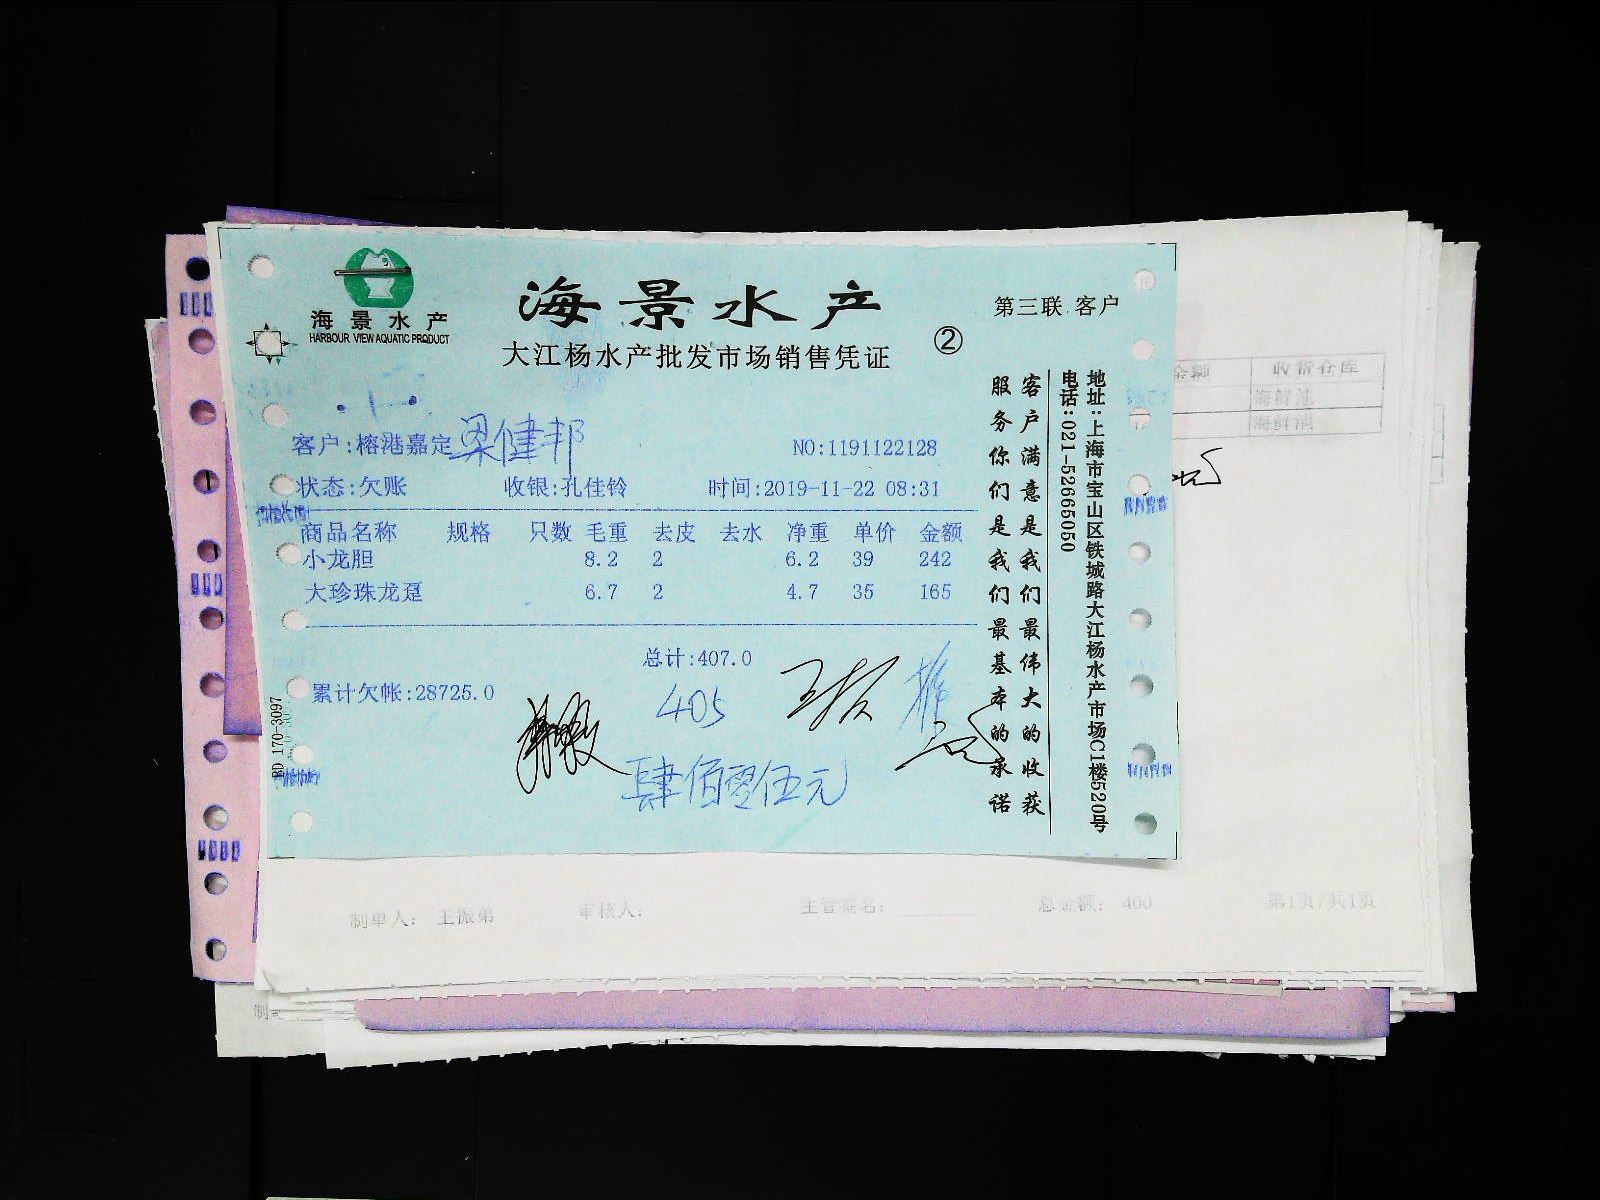 海景水产
HARBOUR VIEW AQUATIC PRODUCT
海景水产
大江杨水产批发市场销售凭证
②
第三联 客户
客户:榕港嘉定 梁健邦
NO:1191122128
状态:欠账 收银:孔佳铃 时间:2019-11-22 08:31
商品名称 规格 只数 毛重 去皮 去水 净重 单价 金额
小龙胆 8.2 2 6.2 39 242
大珍珠龙趸 6.7 2 4.7 35 165
总计:407.0
累计欠帐:28725.0
405
肆佰零伍元
BD 170-3097
客户满意是我们最伟大的收获
服务你们是我们最基本的承诺
地址:上海市宝山区铁城路大江杨水产市场C1楼520号
电话:021-52665050
金额 收货仓库
海鲜池
海鲜池
制单人: 王振弟 审核人: 主管签名: 总金额: 400 第1页/共1页
制